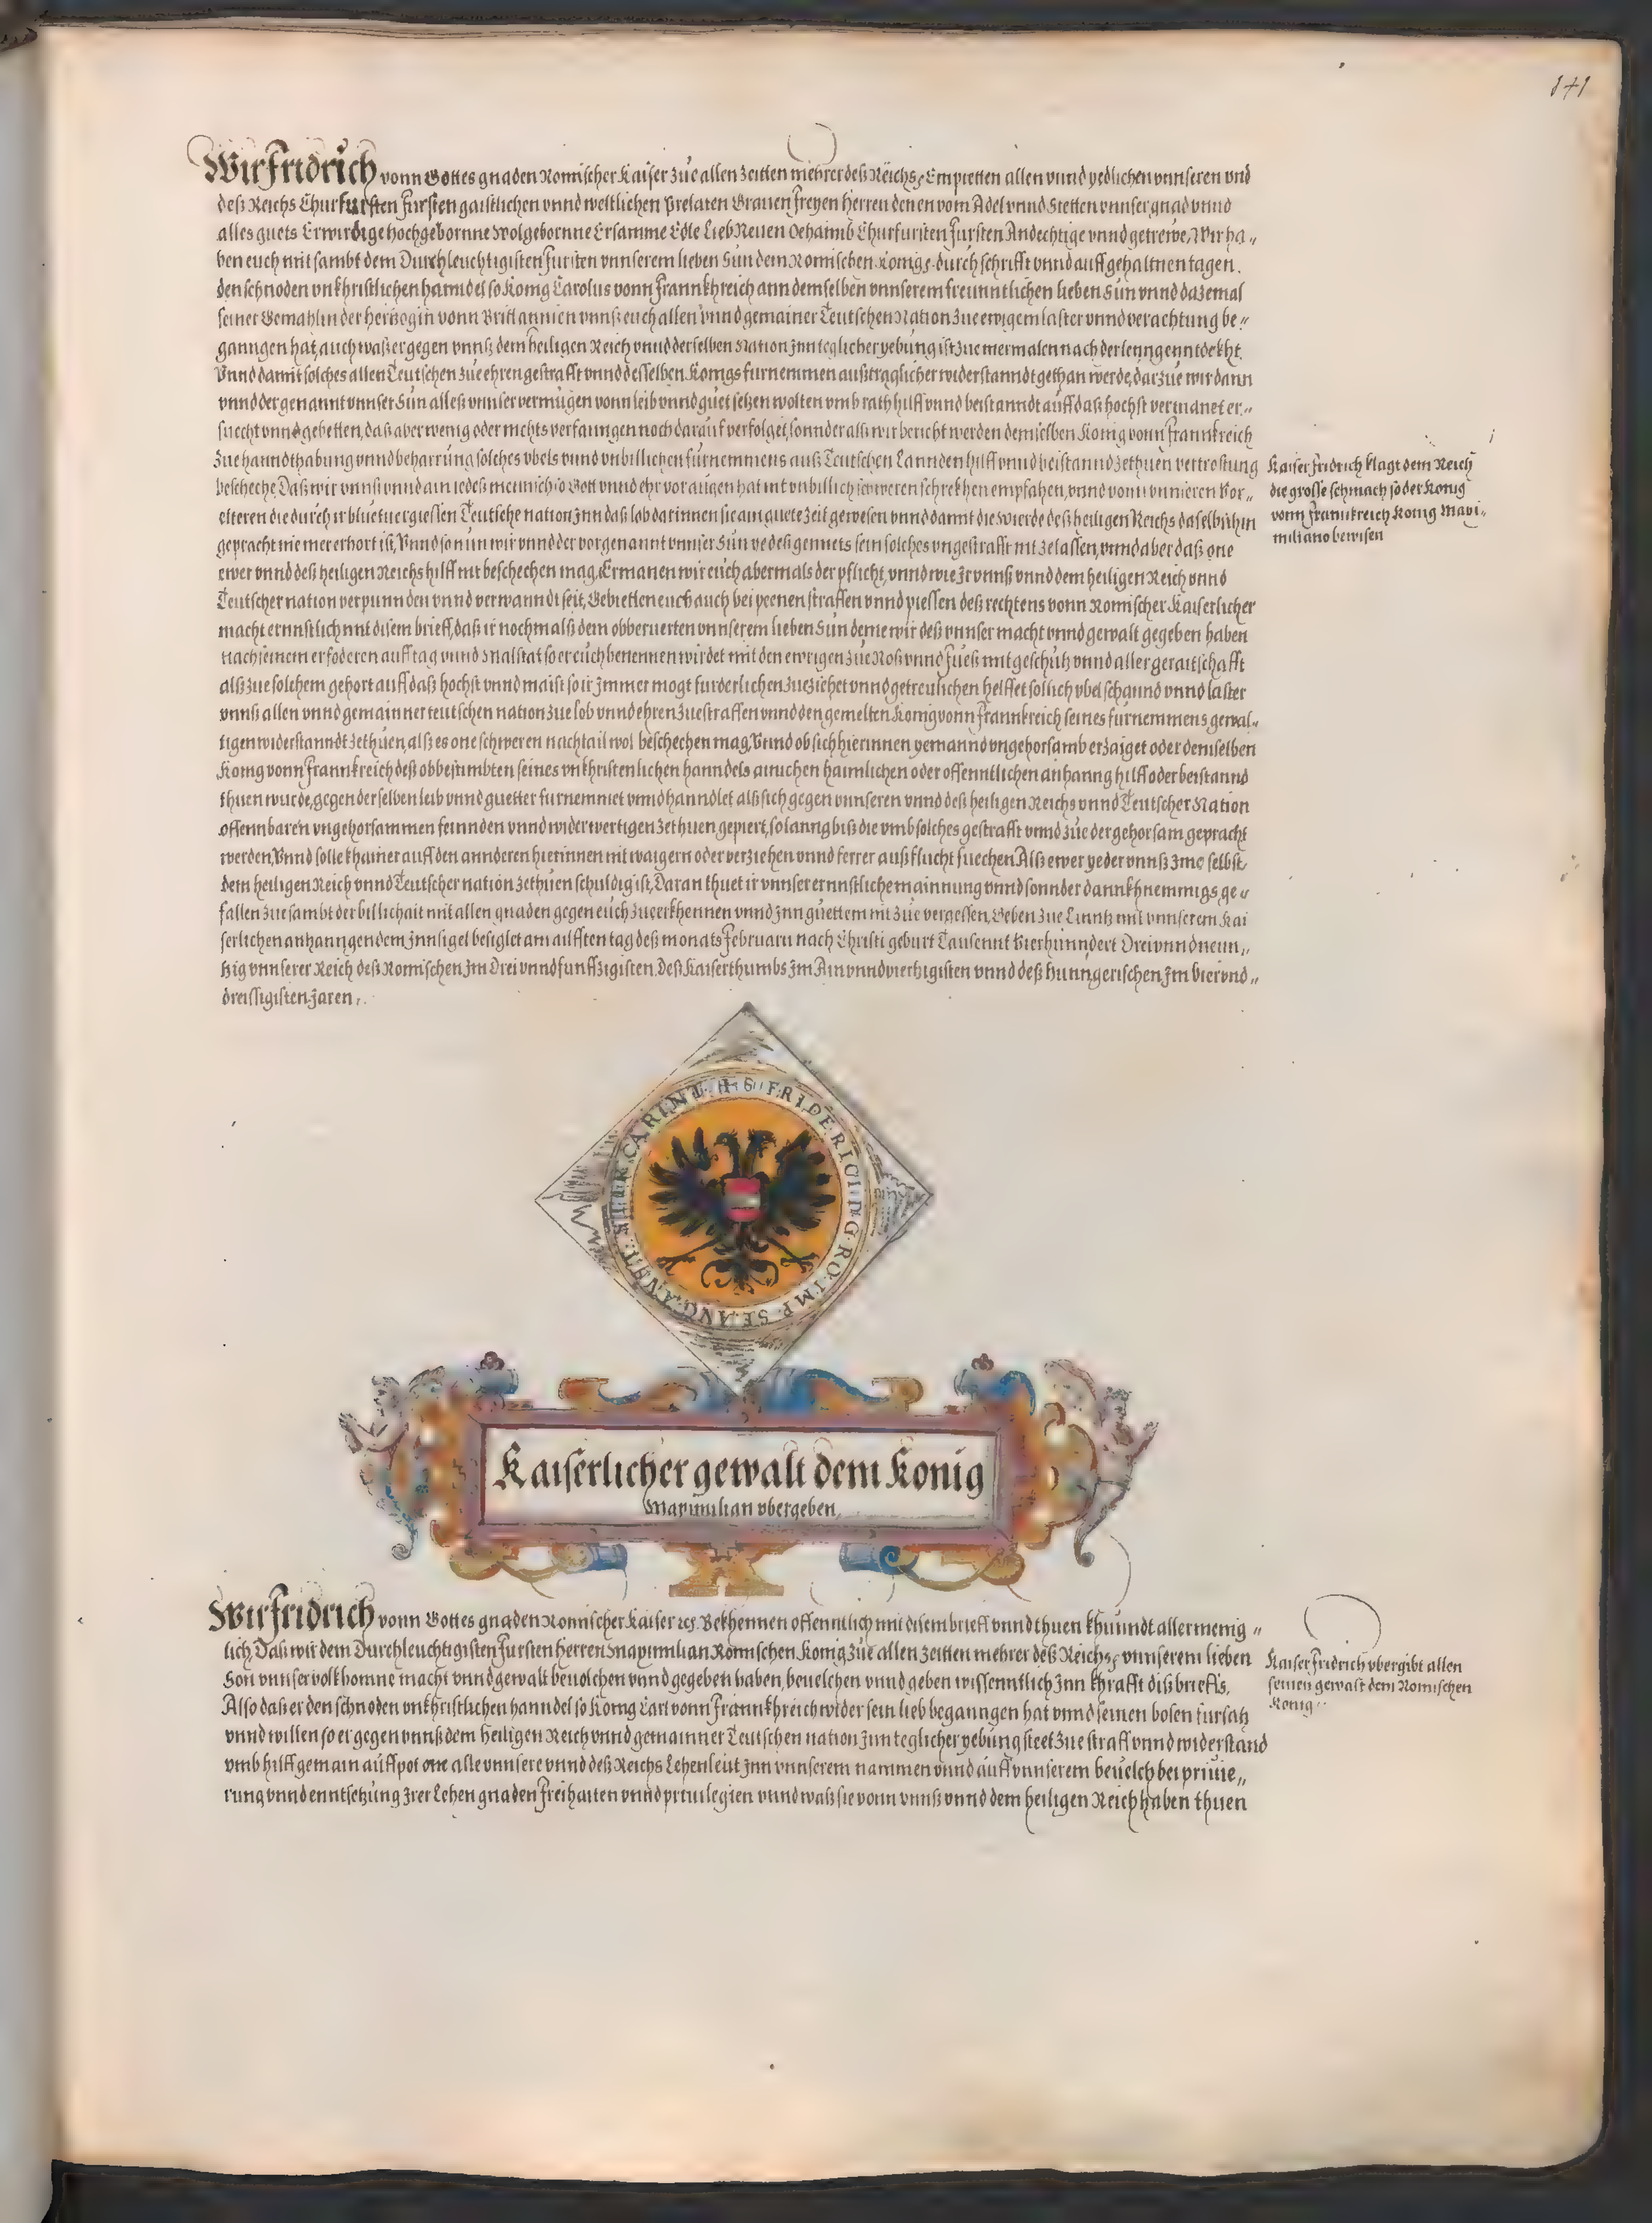 141
Wir Fridrich vonn Gottes gnaden Romischer Kaiser zue allen zeitten mehrer deß Reichs, Empietten allen vnnd yedlichen vnnseren vnd
deß Reichs Churfursten fursten gaistlichen vnnd weltlichen Prelaten Grauen freyen herren denen vom Adel vnnd Stetten vnnser gnad vnnd
alles guets Erwirdige hochgebornne Wolgebornne Ersamme Edle Lieb Neuen Oehaimb Churfursten fursten Andechtige vnnd getrewe, Wir ha„
ben euch mit sambt dem Durchleuchtigisten fursten vnnserem lieben Sun dem Romischen Konigs durch schrifft vnnd auff gehaltnen tagen.
den schnoden vnkhristlichen hanndel so Konig Carolus vonn Frannkhreich ann demselben vnnserem freunntlichen lieben Sun vnnd dazemal
seiner Gemahlin der hertzogin vonn Brittannien vnnß euch allen vnnd gemainer Teutschen Nation zue ewigem laster vnnd verachtung be„
ganngen hat, auch waß er gegen vnnß dem heiligen Reich vnnd derselben Nation jnn teglicher yebung ist zue mermalen nach der lenng enntdekht.
Vnnd damit solches allen Teutschen zue ehren gestrafft vnnd desselben Konigs furnemmen außtraglicher widerstanndt gethan werde, darzue wir dann
vnnd der genannt vnnser Sun alleß vnnser vermugen vonn leib vnnd guet setzen wolten vmb rath hilff vnnd beistanndt auff daß hochst vermanet er„
suecht vnnd gebetten, daß aber wenig oder nichts verfanngen noch darauf verfolget, sonnder alß wir bericht werden demselben Konig vonn Frannkreich
zue hanndthabung vnnd beharrung solches vbels vnnd vnbillichen furnemmens auß Teutschen Lannden hilff vnnd beistannd zethuen vertrostung
bescheche, Daß wir vnnß vnnd ain iedeß mennsch so Gott vnnd ehr vor augen hat nit vnbillich schweren schrekhen empfahen, vnnd vonn vnnseren Vor„
elteren die durch ir bluetuergiessen Teutsche nation jnn daß lob darinnen sie ain guete zeit gewesen vnnd damit die Wierde deß heiligen Reichs daselbsthin
gepracht nie mer erhort ist, Vnnd so nun wir vnnd der vorgenannt vnnser Sun ye deß gemuets sein solches vngestrafft nit zelassen, vnnd aber daß one
ewer vnnd deß heiligen Reichs hilff nit beschechen mag, Ermanen wir euch abermals der pflicht, vnnd wie Jr vnnß vnnd dem heiligen Reich vnnd
Teutscher nation verpunnden vnnd verwanndt seit, Gebietten euch auch bei peenen straffen vnnd piessen deß rechtens vonn Romischer Kaiserlicher
macht ernnstlich mit disem brieff, daß ir nochmalß dem obberuerten vnnserem lieben Sun deme wir deß vnnser macht vnnd gewalt gegeben haben
nach seinem erfoderen auff tag vnnd Malstat so er euch benennen wirdet mit den ewrigen zue Roß vnnd Fueß mit geschutz vnnd aller geraitschafft
alß zue solchem gehort auff daß hochst vnnd maist so ir jmmer mogt furderlichen zueziehet vnnd getreulichen helffet sollich vbel schannd vnnd laster
vnnß allen vnnd gemainner teutschen nation zue lob vnnd ehren zue straffen vnnd den gemelten Konig vonn Frannkreich seines furnemmens gewal„
tigen widerstanndt zethuen, alß es one schweren nachtail wol beschechen mag, Vnnd ob sich hierinnen yemannd vngehorsamb erzaiget oder demselben
Konig vonn Frannkreich deß obbestimbten seines vnkhristenlichen hanndels ainichen haimlichen oder offenntlichen anhanng hilff oder beistannd
thuen wurde, gegen derselben leib vnnd guetter furnemmet vnnd hanndlet alß sich gegen vnnseren vnnd deß heiligen Reichs vnnd Teutscher Nation
offennbaren vngehorsammen feinnden vnnd widerwertigen zethuen gepiert, so lanng biß die vmb solches gestrafft vnnd zue der gehorsam gepracht
werden, Vnnd solle khainer auff den annderen hierinnen mit waigern oder verziehen vnnd ferrer außflucht suechen Alß ewer yeder vnnß Jme selbst,
dem heiligen Reich vnnd Teutscher nation zethuen schuldig ist, Daran thuet ir vnnser ernnstliche mainnung vnnd sonnder dannkhnemmigs ge„
fallen zue sambt der billichait mit allen gnaden gegen euch zue erkhennen vnnd jnn guettem nit zue vergessen, Geben zue Linntz mit vnnserem Kai
serlichen anhanngendem Jnnsigel besiglet am ailfften tag deß monats Februarii nach Christi geburt Tausennt Vierhunndert Drei vnnd neun„
tzig vnnserer Reich deß Romischen jm Drei vnnd funffzigisten, Deß Kaiserthumbs jm Ain vnnd viertzigisten vnnd deß hunngerischen jm Vier vnd„
dreissigisten Jaren.
Kaiser Fridrich klagt dem Reich
die grosse schmach so der Konig
vonn Frannkreich Konig Maxi„
miliano bewisen
FRIDERICI D G RO IMP SE AVG AVST STIR CARINT
Kaiserlicher gewalt dem Konig
Maximilian vbergeben.
Wir Fridrich vonn Gottes gnaden Romischer Kaiser ec. Bekhennen offenntlich mit disem brieff vnnd thuen khunndt allermenig„
lich, Daß wir dem Durchleuchtigisten Fursten herren Maximilian Romischen Konig zue allen zeitten mehrer deß Reichs, vnnserem lieben
Son vnnser volkhomne macht vnnd gewalt beuolchen vnnd gegeben haben, beuelchen vnnd geben wissenntlich jnn khrafft diß brieffs,
Also daß er den schnoden vnkhristlichen hanndel so Konig Carl vonn Frannkhreich wider sein lieb beganngen hat vnnd seinen bosen fursatz
vnnd willen so er gegen vnnß dem heiligen Reich vnnd gemainner Teutschen nation jnn teglicher yebung steet zue straff vnnd widerstand
vmb hilff gemain auffpot one alle vnnsere vnnd deß Reichs Lehenleut jnn vnnserem nammen vnnd auff vnnserem beuelch bei priuie„
rung vnnd enntsetzung Jrer Lehen gnaden Freihaiten vnnd priuilegien vnnd waß sie vonn vnnß vnnd dem heiligen Reich haben thuen
Kaiser Fridrich vbergibt allen
seinen gewalt dem Romischen
Konig